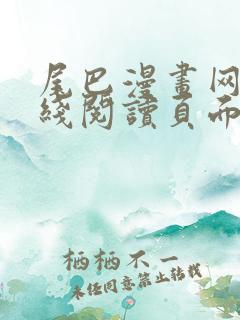 尾巴漫畫网
綫閱讀頁而
栖栖不一
未经同意禁止转载